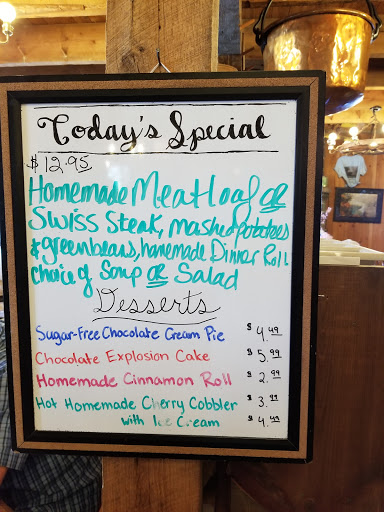 Today's Special
$12.95
Homemade Meatloaf or
Swiss Steak, mashed potatoes
& greenbeans, homemade Dinner Roll
Choice of Soup or Salad
Desserts
Sugar-Free Chocolate Cream Pie $4.49
Chocolate Explosion Cake $5.99
Homemade Cinnamon Roll $2.99
Hot Homemade Cherry Cobbler $3.99
with Ice Cream $4.49